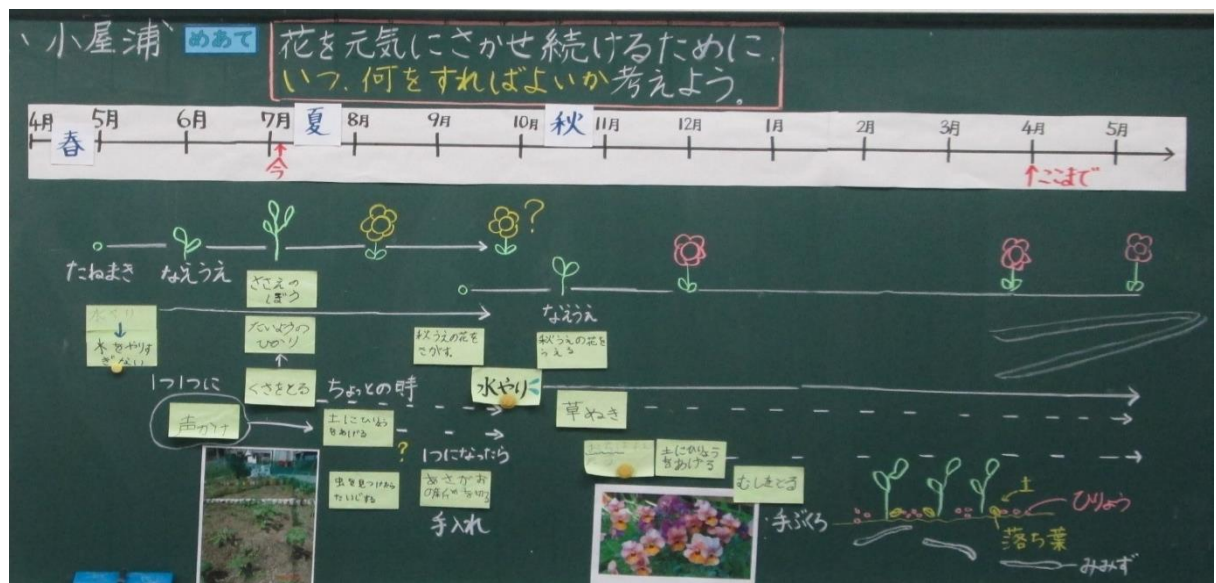 小屋浦
めあて
花を元気にさかせ続けるために、
いつ、何をすればよいか考えよう。
4月 5月 6月 7月 8月 9月 10月 11月 12月 1月 2月 3月 4月 5月
春 夏 秋
↑今
↑ここまで
?
たねまき なえうえ
ささえの
ぼう
なえうえ
水やり
↓
水をやりす
ぎない
たいようの
ひかり
秋うえの花を
さがす。
秋うえの花を
うえる
1つ1つに
くさをとる
ちょっとの時
水やり
草ぬき
声かけ
土にひりょう
をあげる
?
1つになったら
土にひりょう
をあげる
虫を見つけたら
たいじする
あさがお
むしをとる
手入れ
手ぶくろ
土
ひりょう
落ち葉
みみず